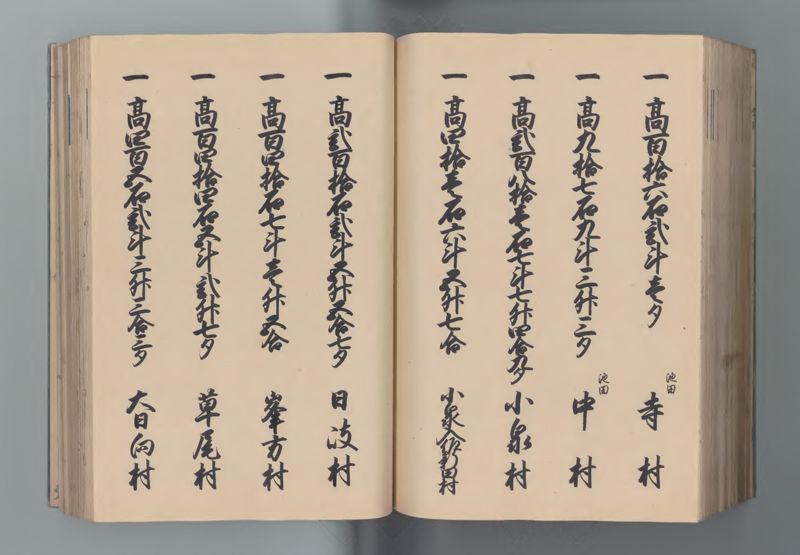 一 高百拾六石弐斗壱夕 池田 寺村
一 高九拾七石九斗三升三夕 池田 中村
一 高弐百八拾壱石七斗七升四合九夕 小泉村
一 高四拾壱石六斗五升七合 小泉 新田村
一 高弐百拾石弐斗五升五合七夕 日 村
一 高百四拾石七斗壱升五合 峯方村
一 高百四拾四石五斗弐升七夕 草尾村
一 高四百五石弐斗三升三合三夕 大日向村